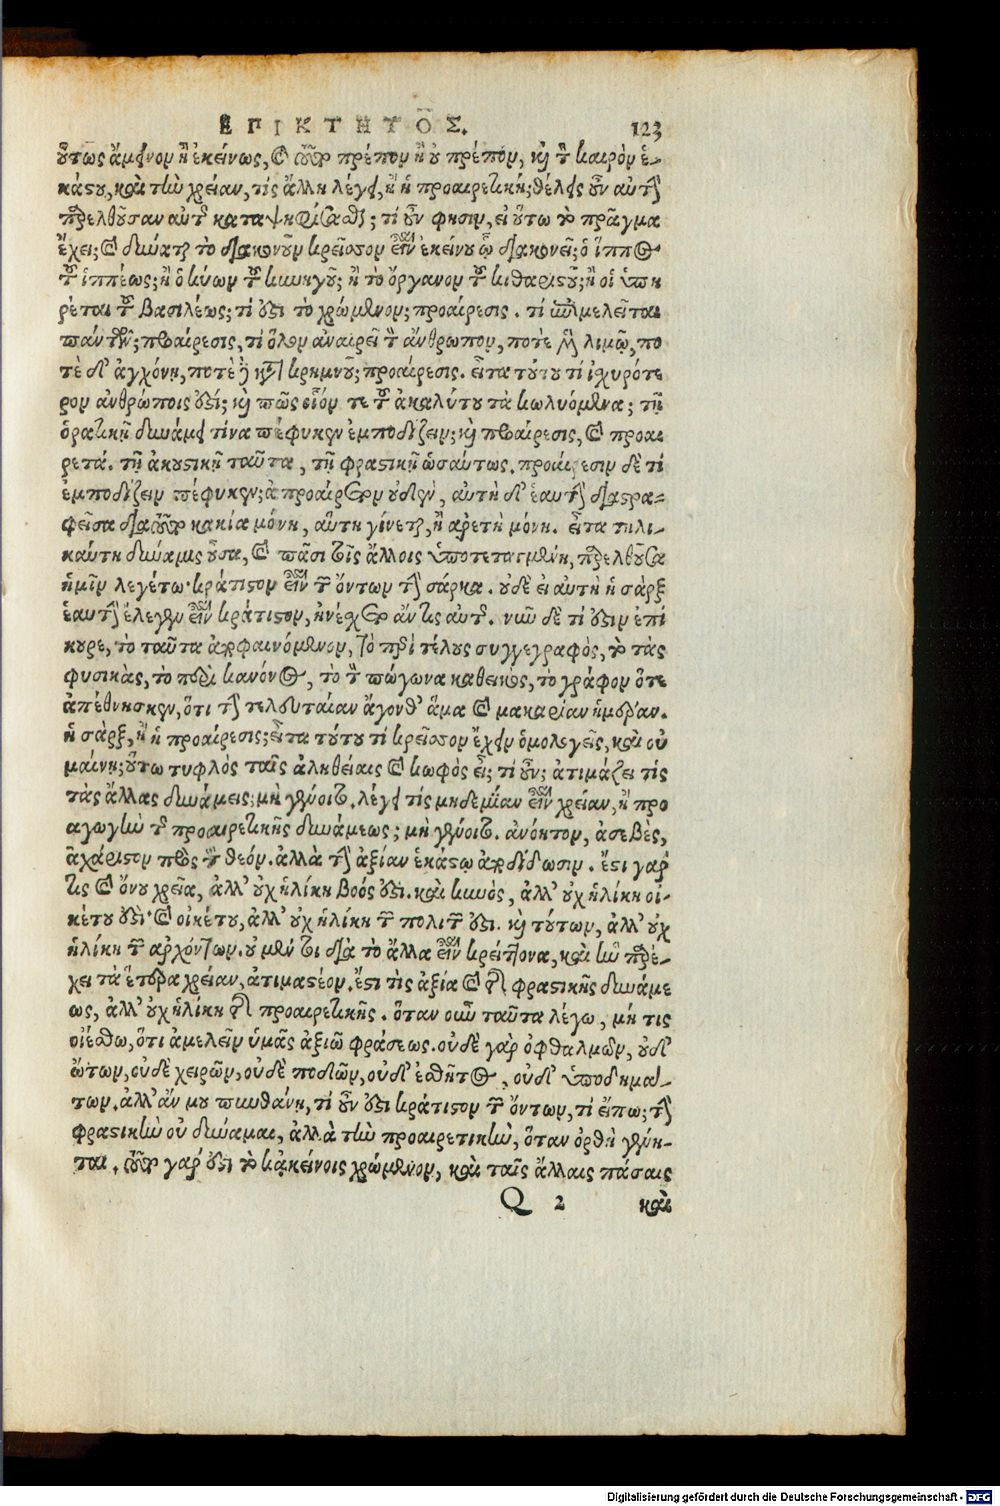 ΕΠΙΚΤΗΤΟΣ. 123
οὕτως ἄμεινον ἢ ἐκείνως, καὶ τοῦτο πρέπον ἢ οὐ πρέπον, καὶ τὸν καιρὸν ἑ-
κάστου, καὶ τὴν χρείαν, τίς ἄλλη λέγει, ἢ ἡ προαιρετική; θέλεις οὖν αὐτὴν
παρελθοῦσαν αὐτοῦ καταψηφίζεσθαι; τί οὖν φησιν, εἰ οὕτω τὸ πρᾶγμα
ἔχει; καὶ δύναται τὸ διακονοῦν κρεῖσσον εἶναι ἐκείνου ᾧ διακονεῖ; ὁ ἵππος
τοῦ ἱππέως; ἢ ὁ κύων τοῦ κυνηγοῦ; ἢ τὸ ὄργανον τοῦ κιθαριστοῦ; ἢ οἱ ὑπη
ρέται τοῦ βασιλέως; τί ἐστι τὸ χρώμενον; προαίρεσις. τί ἐπιμελεῖται
πάντων; προαίρεσις, τί ὅλον ἀναιρεῖ τὸν ἄνθρωπον, ποτὲ μὲν λιμῷ, πο
τὲ δ' ἀγχόνῃ, ποτὲ δὲ κατὰ κρημνοῦ; προαίρεσις. εἶτα τούτου τί ἰσχυρότε
ρον ἀνθρώποις ἐστί; καὶ πῶς οἷόν τε τοῦ ἀκαλύτου τὰ κωλυόμενα; τῇ
ὁρατικῇ δυνάμει τίνα πέφυκεν ἐμποδίζειν; καὶ προαίρεσις, καὶ προαι
ρετά. τῇ ἀκουστικῇ ταῦτα, τῇ φραστικῇ ὡσαύτως. προαίρεσιν δὲ τί
ἐμποδίζειν πέφυκεν; ἀπροαίρετον οὐδὲν, αὐτὴ δ' ἑαυτὴν διαστρα-
φεῖσα διὰ τοῦτο κακία μόνη, αὕτη γίνεται, ἢ ἀρετὴ μόνη. εἶτα τηλι-
καύτη δύναμις οὖσα, καὶ πᾶσι τοῖς ἄλλοις ὑποτεταγμένη, παρελθοῦσα
ἡμῖν λεγέτω· κράτιστον εἶναι τῶν ὄντων τὴν σάρκα. οὐδὲ εἰ αὐτὴ ἡ σὰρξ
ἑαυτὴν ἔλεγεν εἶναι κράτιστον, ἠνέσχετο ἄν τις αὐτοῦ. νῦν δὲ τί ἐστιν ἐπί
κουρε, τὸ ταῦτα ἀποφαινόμενον, τὸ περὶ τέλους συγγεγραφὸς, τὸ τὰς
φυσικὰς, τὸ περὶ κανόνος, τὸ τὸν πώγωνα καθεικὸς, τὸ γράφον ὅτε
ἀπέθνησκεν, ὅτι τὴν τελευταίαν ἄγονθ' ἅμα καὶ μακαρίαν ἡμέραν.
ἡ σὰρξ, ἢ ἡ προαίρεσις; εἶτα τούτου τί κρεῖσσον ἔχειν ὁμολογεῖς, καὶ οὐ
μαίνῃ; οὕτω τυφλὸς ταῖς ἀληθείαις καὶ κωφὸς εἶ; τί οὖν; ἀτιμάζει τίς
τὰς ἄλλας δυνάμεις; μὴ γένοιτο. λέγει τίς μηδεμίαν εἶναι χρείαν, ἢ προ
αγωγὴν τῆς προαιρετικῆς δυνάμεως; μὴ γένοιτο. ἀνόητον, ἀσεβὲς,
ἀχάριστον πρὸς τὸν θεόν. ἀλλὰ τὴν ἀξίαν ἑκάστῳ ἀποδίδωσιν. ἔστι γάρ
τις καὶ ὄνου χρεία, ἀλλ' οὐχ ἡλίκη βοός ἐστι. καὶ κυνὸς, ἀλλ' οὐχ ἡλίκη οἰ-
κέτου ἐστί· καὶ οἰκέτου, ἀλλ' οὐχ ἡλίκη τῶν πολιτῶν ἐστι. καὶ τούτων, ἀλλ' οὐχ
ἡλίκη τῶν ἀρχόντων. οὐ μέν τοι διὰ τὸ ἄλλα εἶναι κρείττονα, καὶ ἣν παρέ-
χει τὰ ἕτερα χρείαν, ἀτιμαστέον. ἔστι τὶς ἀξία καὶ τῆς φραστικῆς δυνάμε
ως, ἀλλ' οὐχ ἡλίκη τῆς προαιρετικῆς. ὅταν οὖν ταῦτα λέγω, μή τις
οἰέσθω, ὅτι ἀμελεῖν ὑμᾶς ἀξιῶ φράσεως. οὐδὲ γὰρ ὀφθαλμῶν, οὐδ'
ὤτων, οὐδὲ χειρῶν, οὐδὲ ποδῶν, οὐδ' ἐσθῆτος, οὐδ' ὑποδημά-
των. ἀλλ' ἄν μου πυνθάνῃ, τί οὖν ἐστι κράτιστον τῶν ὄντων, τί εἴπω; τὴν
φραστικὴν οὐ δύναμαι, ἀλλὰ τὴν προαιρετικὴν, ὅταν ὀρθὴ γένη-
ται. τοῦτο γάρ ἐστι τὸ κἀκείνοις χρώμενον, καὶ ταῖς ἄλλαις πάσαις
Q 2 καὶ
Digitalisierung gefördert durch die Deutsche Forschungsgemeinschaft - DFG